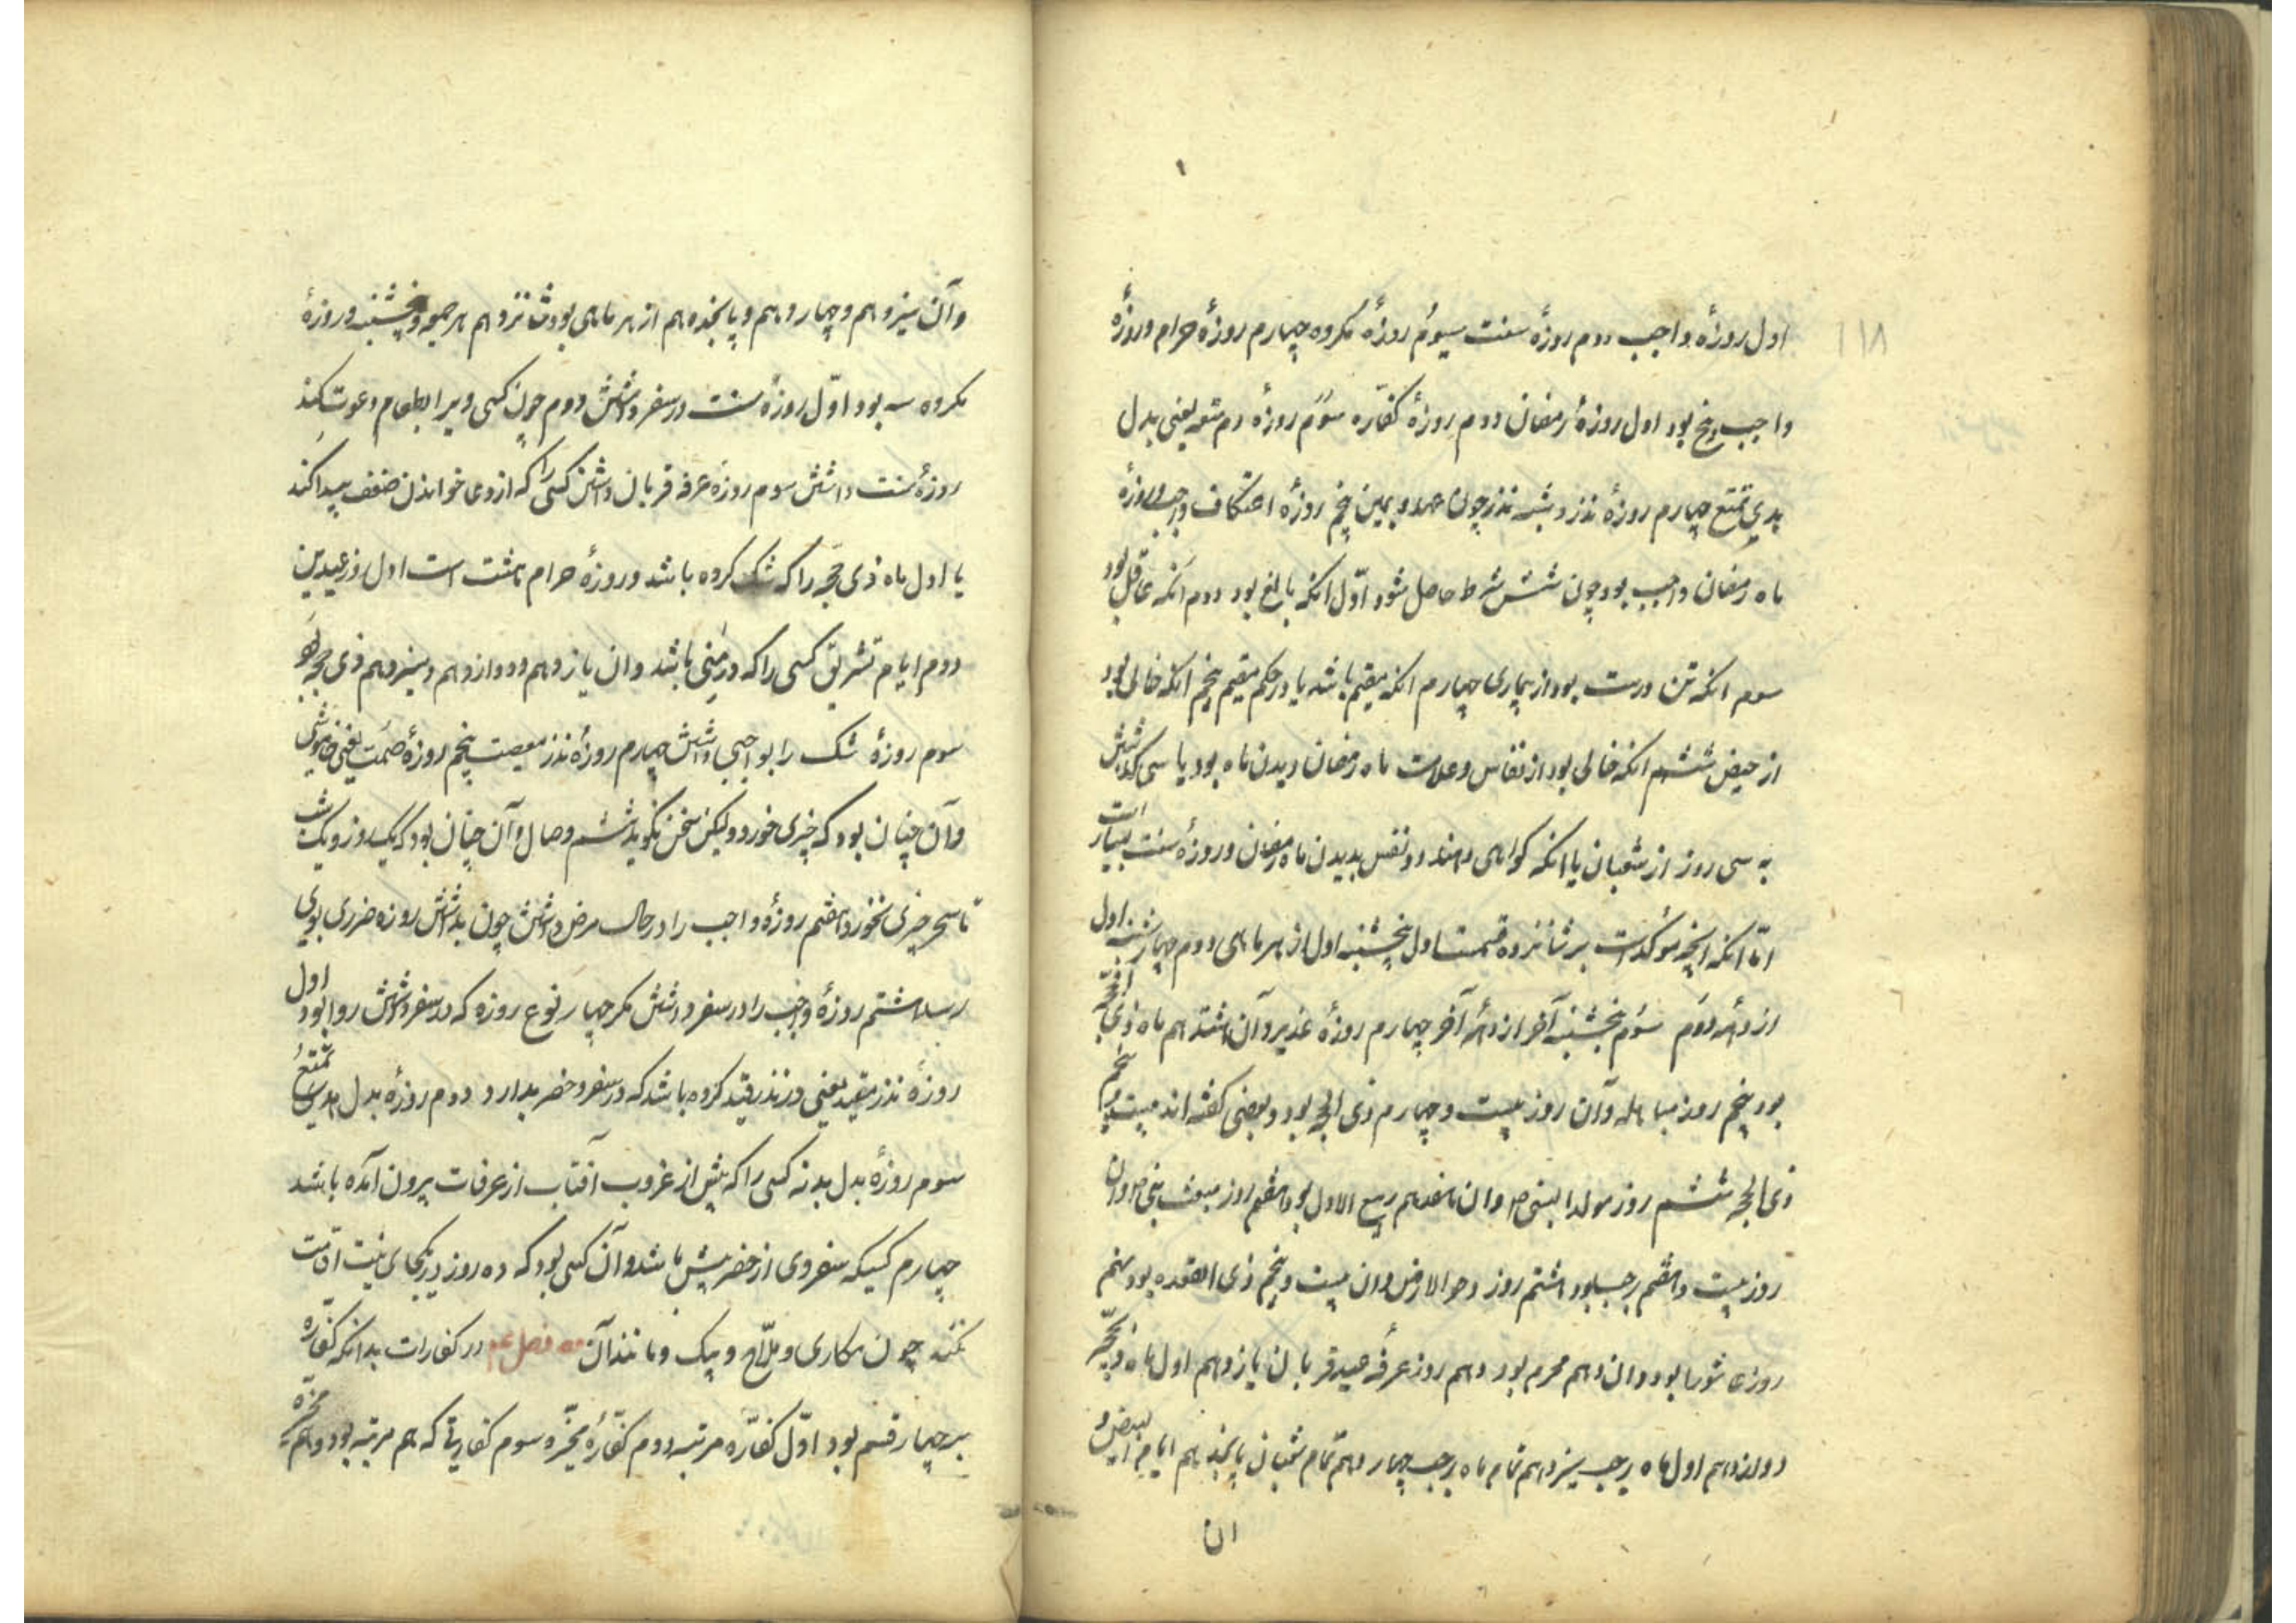 ۱۱۸
اول روزهٔ واجب دوم روزهٔ سنت سیوم روزهٔ مکروه چهارم روزهٔ حرام و روزهٔ
واجب پنج بود اول روزهٔ رمضان دوم روزهٔ کفّاره سوم روزهٔ دم متعه یعنی بدل
هدی تمتع چهارم روزهٔ نذر و شبه نذر چون عهد و یمین پنجم روزهٔ اعتکاف واجب و روزهٔ
ماه رمضان واجب بود چون شش شرط حاصل شود اوّل انکه بالغ بود دوم آنکه عاقل بود
سوم انکه تن درست بود از بیماری چهارم انکه مقیم باشد یا در حکم مقیم پنجم انکه خالی بود
از حیض ششم انکه خالی بود از نفاس و علامت ماه رمضان دیدن ماه بود یا سی
به سی روز از شعبان یا انکه کواهی دهند دو نفس بدیدن ماه رمضان و روزهٔ سنت بسیار است
امّا انکه انچه مؤکد است بر شانزده قسمت اول پنجشنبه اول از هر ماهی دوم چهارشنبه اول
از دههٔ دوّم سوم پنجشنبه آخر از دههٔ آخر چهارم روزهٔ غدیر و آن هشتدهم ماه ذی الحجّه
بود پنجم روز مباهله و آن روز بیست و چهارم ذی الحجه بود و بعضی کفته اند بیست و پنجم
ذی الحجه ششم روز مولد النبی ص و ان هفدهم ربیع الاول بود هفتم روز مبعث نبی ص و ان
روز بیست و هفتم رجب بود هشتم روز دحو الارض و ان بیست و پنجم ذی القعده بود نهم
روز عاشورا بود و ان دهم محرم بود دهم روز عرفهٔ عید قربان یازدهم اول ماه ذیحجّه
دوازدهم اول ماه رجب سیزدهم تمام ماه رجب چهاردهم تمام شعبان پانجدهم ایام البیض و
ان
وآن سیزدهم و چهاردهم و پانجدهم از هر ماهی بود شانزدهم هر جمعه و پنجشنبه و روزهٔ
مکروه سه بود اوّل روزهٔ سنت در سفر داشتن دوم چون کسی ویرا بطعام دعوت کند
روزهٔ سنت داشتن سوم روزهٔ عرفه قربان داشتن کسی را که ازوی خواندن ضعف پیدا کند
یا اول ماه ذی حجّه را که شک کرده باشد و روزهٔ حرام هشت است اول روز عیدین
دوم ایام تشریق کسی را که در منی باشد و ان یازدهم و دوازدهم و سیزدهم ذی حجه بود
سوم روزهٔ شک را بواجبی داشتن چهارم روزهٔ نذر معصیت پنجم روزهٔ صمت یعنی خاموشی
وآن چنان بود که چیزی خورد ولیکن سخن نکوید ششم وصال و آن چنان بود که یک روز و یک شب
تا سحر چیزی نخورد هفتم روزهٔ واجب را در حال مرض داشتن چون بداشتن روزه ضرری بوی
رسد هشتم روزهٔ واجب را در سفر داشتن مکر چهار نوع روزه که در سفر داشتن روا بود اول
روزهٔ نذر مقید یعنی در نذر قید کرده باشد که در سفر و حضر بدارد دوم روزهٔ بدل هدی تمتع
سوم روزهٔ بدل بدنه کسی را که پیش از غروب آفتاب از عرفات بیرون آمده باشد
چهارم کسیکه سفر وی از حضر بیش باشد و آن کسی بود که ده روز در یکجای نیت اقامت
نکند چون مکاری و ملّاح و پیک و مانند آن فصل در کفارات بدانکه کفّاره
بر چهار قسم بود اوّل کفّاره مرتبه دوم کفّارهٔ مخیّره سوم کفارتی که هم مرتبه بود و هم مخیّره